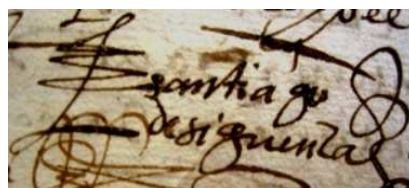 santiago
de siguenza